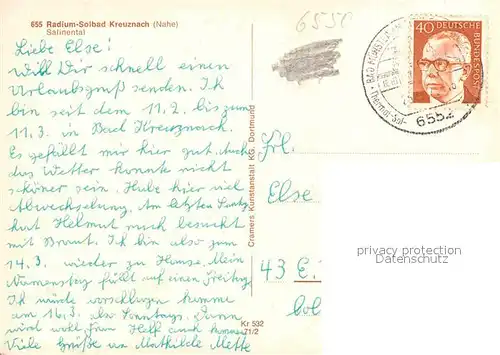 655 Radium-Solbad Kreuznach (Nahe)
Salinental
6550
Liebe Else!
Will Dir schnell einen
Urlaubsgruß senden. Ich
bin seit dem 11.2. bis zum
11.3. in Bad Kreuznach.
Es gefällt mir hier gut. Auch
das Wetter konnte nicht
schöner sein. Habe hier viel
Abwechselung. Am letzten
hat Helmut mich besucht
mit Braut. Ich bin also zum
14.3. wieder zu Hause. Mein
Namenstag fällt auf einen Freitag
Ich würde vorschlagen komme
am 16.3. also Sonntags. Dann
wird wohl Frau Helf auch kommen
Viele Grüße an Mathilde Mette
Cramers Kunstanstalt KG, Dortmund
Kr 592
71/2
40 DEUTSCHE BUNDESPOST
BAD MÜNSTER
Thermal-Sol-
6552
Frl.
Else
privacy protection
DatenSchutz
43 E.